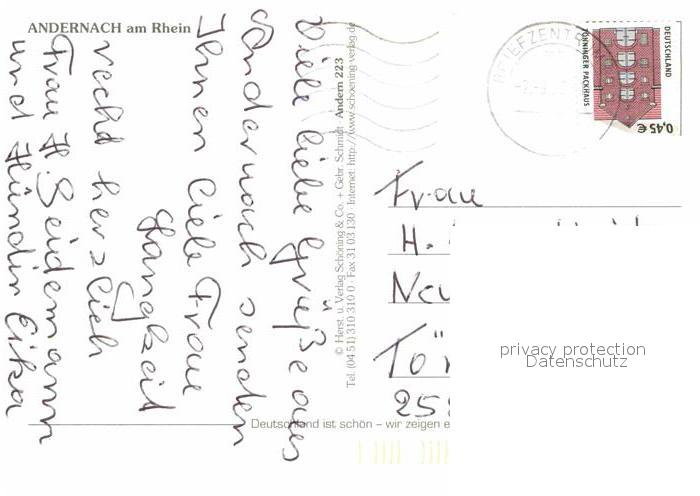 ANDERNACH am Rhein
Viele liebe Grüße aus
Andernach senden
Ihnen liebe Frau
recht herzlich
Frau H. Seidemann
und Hündin
© Herst. u. Verlag Schöning & Co. + Gebr. Schmidt · Andern 223
Tel. (04 51) 310 310 0 · Fax 31 03 130 · Internet: http://www.schoening-verlag.de
BRIEFZENTR
DEUTSCHLAND
TÖNNINGER PACKHAUS
0,45 €
Frau
H.
Tö
25
privacy protection
Datenschutz
Deutschland ist schön – wir zeigen e